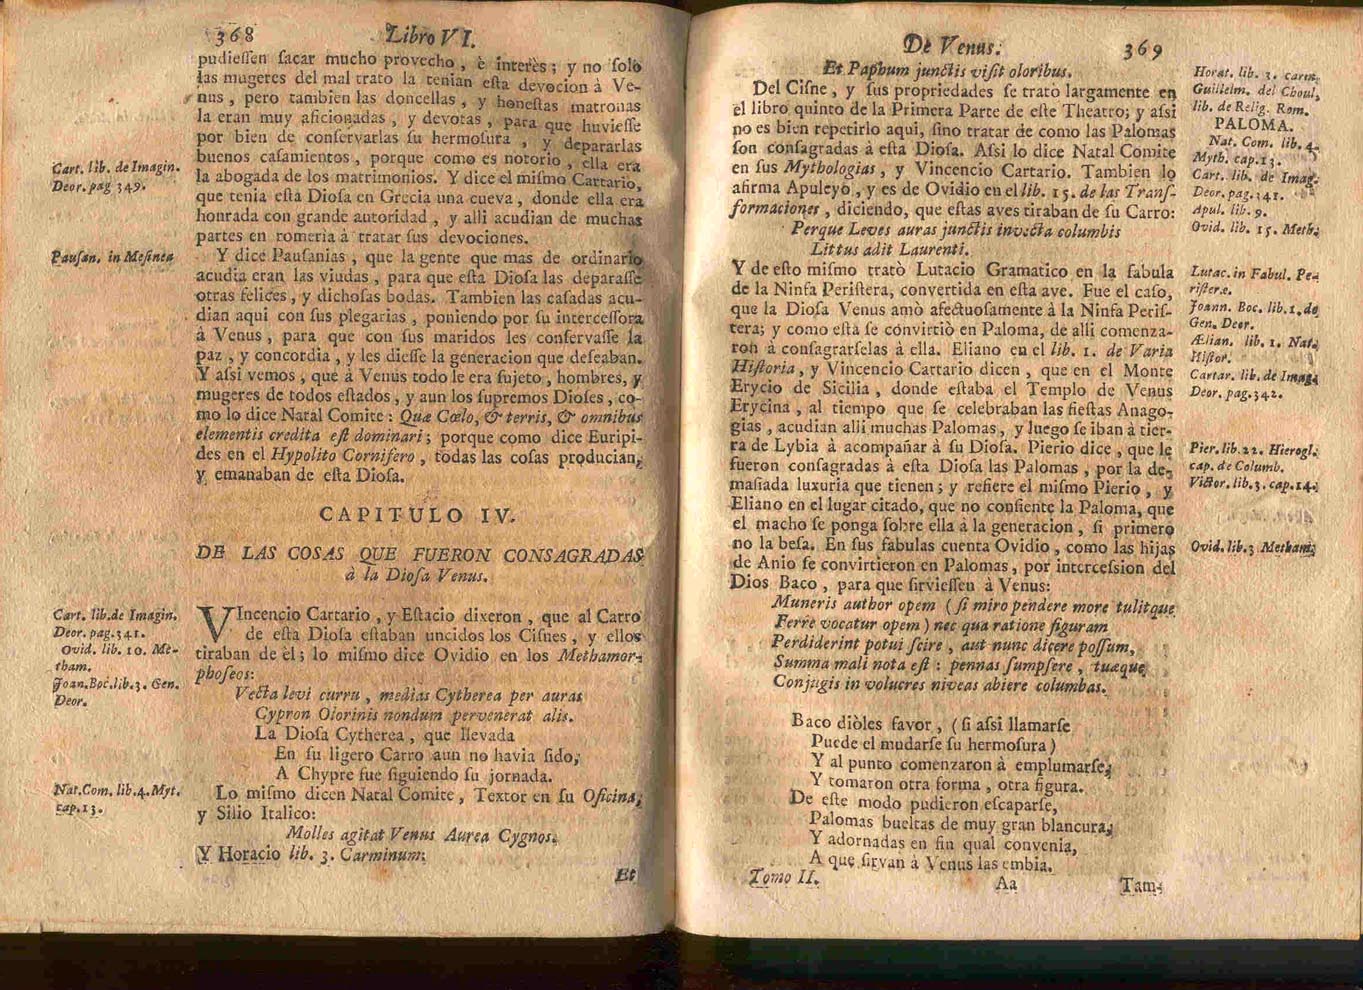 368 Libro VI.
pudieſſen ſacar mucho provecho, è interès; y no ſolo
las mugeres del mal trato la tenian eſta devocion à Ve-
nus, pero tambien las doncellas, y honeſtas matronas
la eran muy aficionadas, y devotas, para que huvieſſe
por bien de conſervarlas ſu hermoſura, y depararlas
buenos caſamientos, porque como es notorio, ella era
la abogada de los matrimonios. Y dice el miſmo Cartario,
que tenia eſta Dioſa en Grecia una cueva, donde ella era
honrada con grande autoridad, y alli acudian de muchas
partes en romeria à tratar ſus devociones.
Y dice Pauſanias, que la gente que mas de ordinario
acudia eran las viudas, para que eſta Dioſa las deparaſſe
otras felices, y dichoſas bodas. Tambien las caſadas acu-
dian aqui con ſus plegarias, poniendo por ſu interceſſora
à Venus, para que con ſus maridos les conſervaſſe la
paz, y concordia, y les dieſſe la generacion que deſeaban.
Y aſsi vemos, que à Venus todo le era ſujeto, hombres, y
mugeres de todos eſtados, y aun los ſupremos Dioſes, co-
mo lo dice Natal Comite: Quæ Cœlo, & terris, & omnibus
elementis credita eſt dominari; porque como dice Euripi-
des en el Hypolito Cornifero, todas las coſas producian,
y emanaban de eſta Dioſa.
CAPITULO IV.
DE LAS COSAS QUE FUERON CONSAGRADAS
à la Dioſa Venus.
VIncencio Cartario, y Eſtacio dixeron, que al Carro
de eſta Dioſa eſtaban uncidos los Ciſnes, y ellos
tiraban de èl; lo miſmo dice Ovidio en los Methamor-
phoſeos:
Vecta levi curru, medias Cytherea per auras
Cypron Olorinis nondum pervenerat alis.
La Dioſa Cytherea, que llevada
En ſu ligero Carro aun no havia ſido,
A Chypre fue ſiguiendo ſu jornada.
Lo miſmo dicen Natal Comite, Textor en ſu Oficina,
y Silio Italico:
Molles agitat Venus Aurea Cygnos.
Y Horacio lib. 3. Carminum:
Et
Cart. lib. de Imagin.
Deor. pag 349.
Pauſan. in Meſinea
Cart. lib. de Imagin.
Deor. pag. 341.
Ovid. lib. 10. Me-
tham.
Joan. Boc. lib. 3. Gen.
Deor.
Nat. Com. lib. 4. Myt.
cap. 13.
De Venus. 369
Et Paphum junctis viſit oloribus.
Del Ciſne, y ſus propriedades ſe tratò largamente en
el libro quinto de la Primera Parte de eſte Theatro; y aſsi
no es bien repetirlo aqui, ſino tratar de como las Palomas
ſon conſagradas à eſta Dioſa. Aſsi lo dice Natal Comite
en ſus Mythologias, y Vincencio Cartario. Tambien lo
afirma Apuleyo, y es de Ovidio en el lib. 15. de las Tranſ-
formaciones, diciendo, que eſtas aves tiraban de ſu Carro:
Perque Leves auras junctis invecta columbis
Littus adit Laurenti.
Y de eſto miſmo tratò Lutacio Gramatico en la fabula
de la Ninfa Periſtera, convertida en eſta ave. Fue el caſo,
que la Dioſa Venus amò afectuoſamente à la Ninfa Periſ-
tera; y como eſta ſe convirtiò en Paloma, de alli comenza-
ron à conſagrarſelas à ella. Eliano en el lib. 1. de Varia
Hiſtoria, y Vincencio Cartario dicen, que en el Monte
Erycio de Sicilia, donde eſtaba el Templo de Venus
Erycina, al tiempo que ſe celebraban las fieſtas Anago-
gias, acudian alli muchas Palomas, y luego ſe iban à tier-
ra de Lybia à acompañar à ſu Dioſa. Pierio dice, que le
fueron conſagradas à eſta Dioſa las Palomas, por la de-
maſiada luxuria que tienen; y refiere el miſmo Pierio, y
Eliano en el lugar citado, que no conſiente la Paloma, que
el macho ſe ponga ſobre ella à la generacion, ſi primero
no la beſa. En ſus fabulas cuenta Ovidio, como las hijas
de Anio ſe convirtieron en Palomas, por interceſsion del
Dios Baco, para que ſirvieſſen à Venus:
Muneris author opem (ſi miro pendere more tulitque
Ferre vocatur opem) nec qua ratione figuram
Perdiderint potui ſcire, aut nunc dicere poſſum,
Summa mali nota eſt: pennas ſumpſere, tuæque
Conjugis in volucres niveas abiere columbas.
Baco diòles favor, (ſi aſsi llamarſe
Puede el mudarſe ſu hermoſura)
Y al punto comenzaron à emplumarſe,
Y tomaron otra forma, otra figura.
De eſte modo pudieron eſcaparſe,
Palomas bueltas de muy gran blancura,
Y adornadas en fin qual convenia,
A que ſirvan à Venus las embia.
Tomo II. Aa Tam-
Horat. lib. 3. carm.
Guilielm. del Choul,
lib. de Relig. Rom.
PALOMA.
Nat. Com. lib. 4.
Myth. cap. 13.
Cart. lib. de Imag.
Deor. pag. 341.
Apul. lib. 9.
Ovid. lib. 15. Meth.
Lutac. in Fabul. Pe-
riſter.e.
Joann. Boc. lib. 1. de
Gen. Deor.
Ælian. lib. 1. Nat.
Hiſtor.
Cartar. lib. de Imag.
Deor. pag. 342.
Pier. lib. 22. Hierogl.
cap. de Columb.
Victor. lib. 3. cap. 14.
Ovid. lib. 3 Metham.